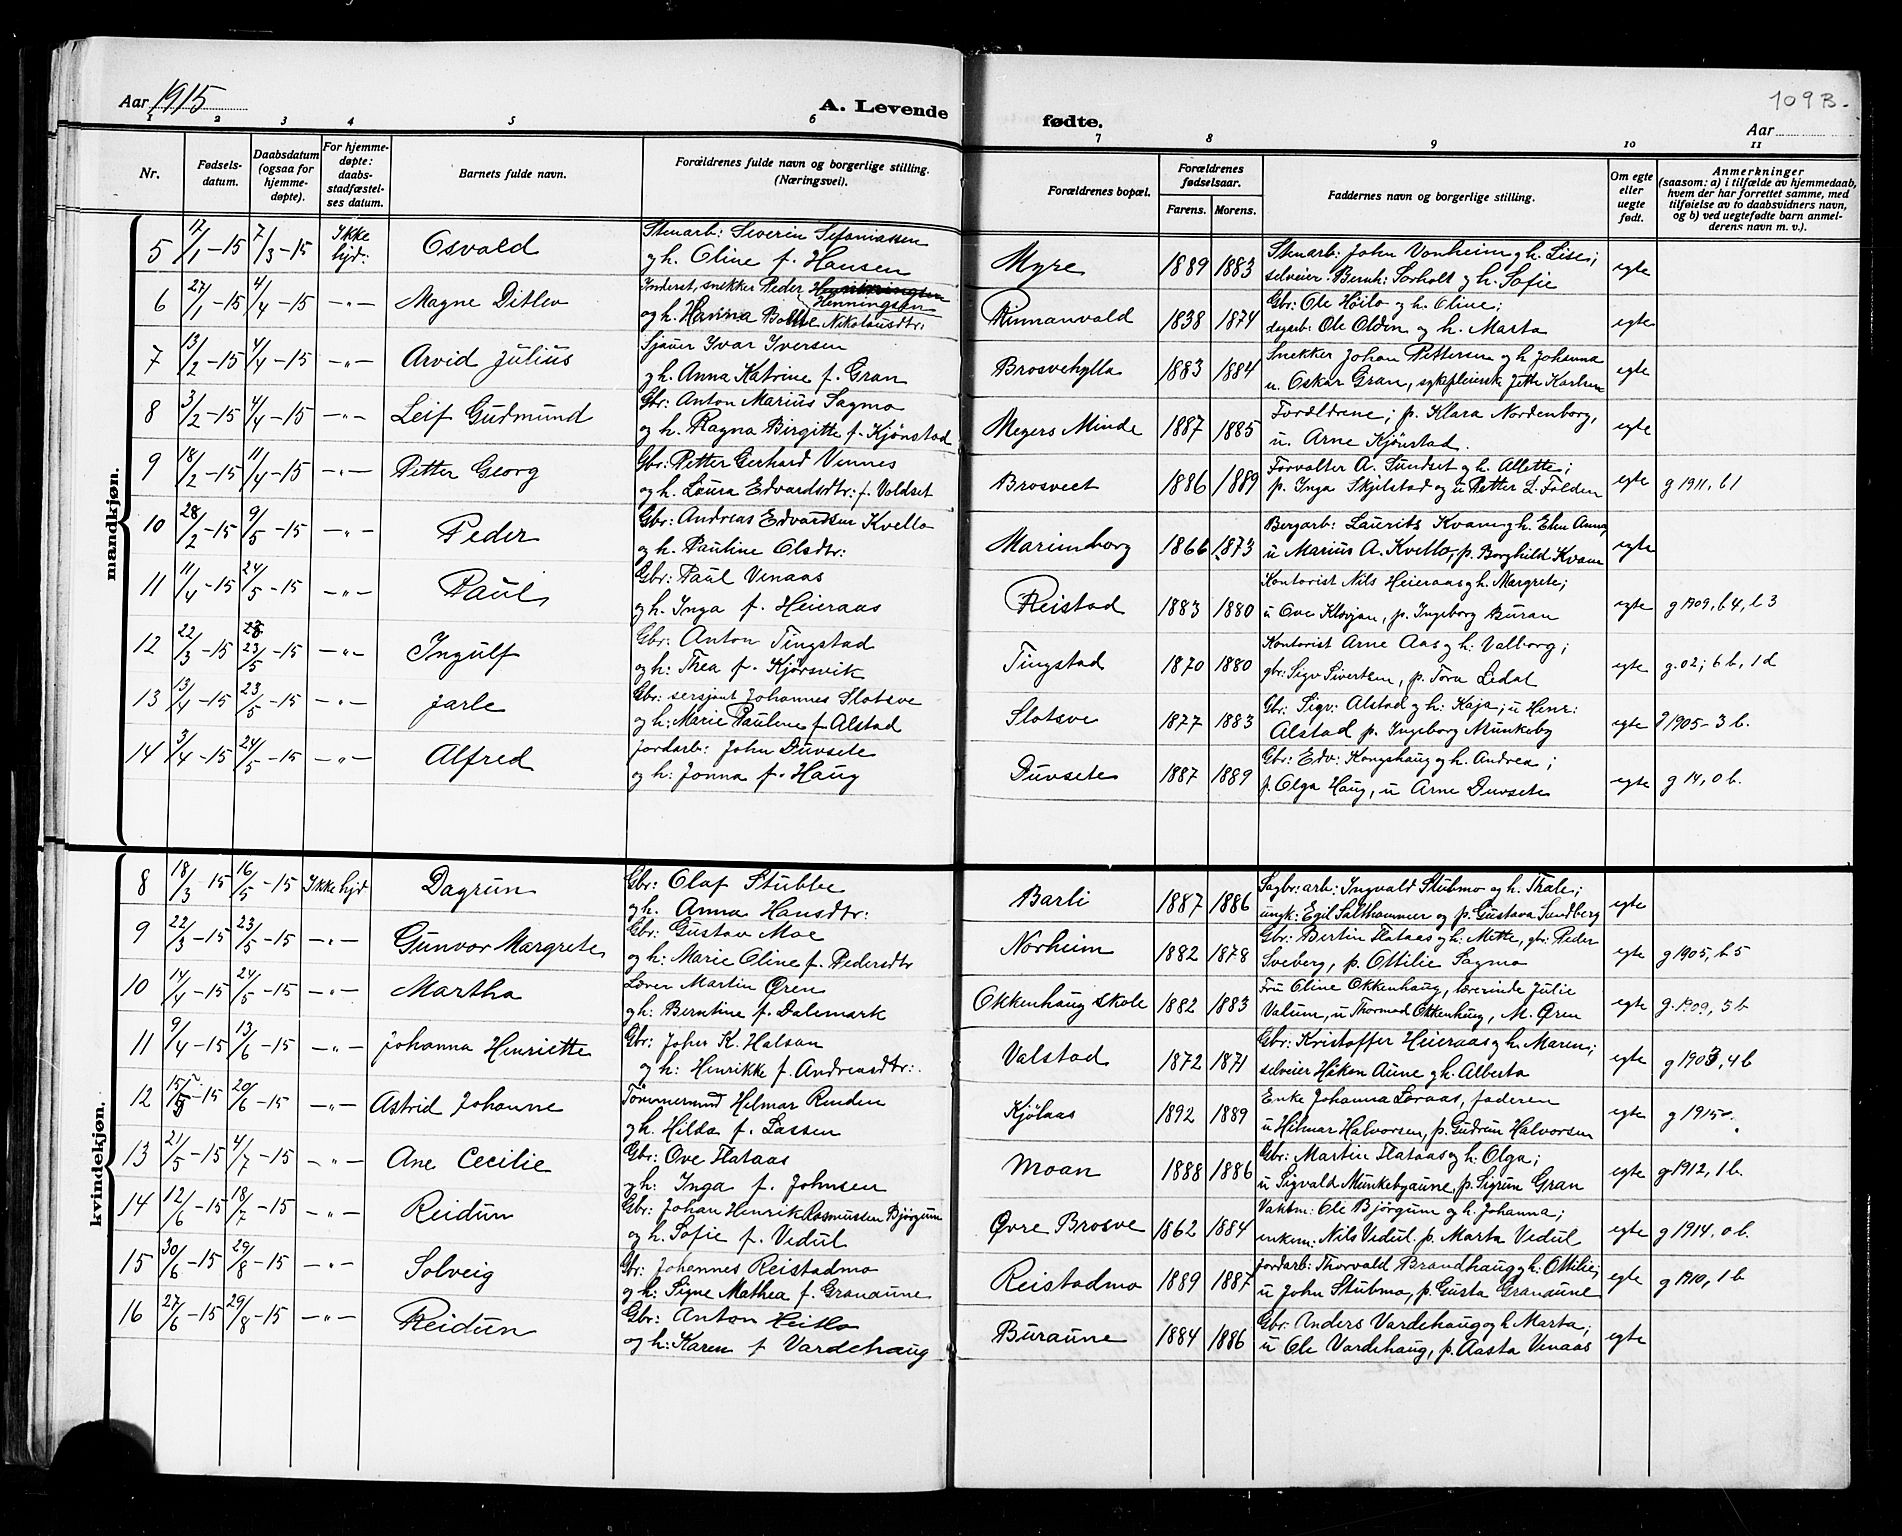 Aar 1915
A. Levende fødte.
109 B.
Aar
1 2 3 4 5 6 7 8 9 10 11
Nr.
Fødsels-
datum.
Daabsdatum
(ogsaa for
hjemme-
døpte).
For hjemme-
døpte:
daabs-
stadfæstel-
ses datum.
Barnets fulde navn.
Forældrenes fulde navn og borgerlige stilling.
(Næringsvei).
Forældrenes bopæl.
Forældrenes
fødselsaar.
Farens. Morens.
Faddernes navn og borgerlige stilling.
Om egte
eller
uegte
født.
Anmerkninger
(saasom: a) i tilfælde av hjemmedaab,
hvem der har forrettet samme, med
tilføielse av to daabsvidners navn,
og b) ved uegtefødte barn anmel-
derens navn m. v.).
mandkjøn.
5 12/1 - 15 7/3 - 15 Ikke hjd: Osvald Stenarb: Severin Sefaniassen
og h. Oline f. Hansen Myre 1889 1883 Stenarb: John Vonheim og h. Lise;
selveier Bernh: Sorholt og h. Sofie egte
6 27/1 - 15 4/4 - 15 -"- Magne Ditlev Inderst, snekker Peder Henningsen
og h. Hanna Bolette Nikolausdtr: Rinnanvald 1838 1874 Gbr: Ole Höilo og h. Oline;
dagarb: Ole Olden og h. Marta egte
7 13/2 - 15 4/4 - 15 -"- Arvid Julius Sjauer Ivar Iversen
og h. Anna Katrine f. Gran Brosvehylla 1883 1884 Snekker Johan Pettersen og h. Johanna
u. Oskar Gran, sykepleierske Jette Karlsen egte
8 3/2 - 15 4/4 - 15 -"- Leif Gudmund Gbr: Anton Marius Sagmo
og h. Ragna Birgitte f. Kjönstad Meyers Minde 1887 1885 Forældrene; p. Klara Nordenborg,
u. Arne Kjönstad. egte
9 18/2 - 15 11/4 - 15 -"- Petter Georg Gbr: Petter Gerhard Vennes
og h. Laura Edvardsdtr: f. Voldset Brosveet 1886 1889 Forvalter A. Sundset og h. Allette;
p. Inga Skjelstad og u Petter L. Folden egte g 1911, b 1
10 28/2 - 15 9/5 - 15 -"- Peder Gbr: Andreas Edvardsen Kvello
og h. Pauline Olsdtr: Marienborg 1866 1873 Bergarb: Laurits Kvam og h. Elen Anna,
u Marius A. Kvello, p. Borghild Kvam egte
11 11/4 - 15 24/5 - 15 -"- Paul Gbr: Paul Venaas
og h. Inga f. Heieraas Reistad 1883 1880 Kontorist Nils Heieraas og h. Margrete;
u Ove Klovjan, p. Ingeborg Buran egte g 1909, b 4, l 3
12 22/3 - 15 23/5 - 15 -"- Ingulf Gbr: Anton Tingstad
og h: Thea f. Kjörsvik Tingstad 1870 1880 Kontorist Arne Aas og h: Valborg;
gbr: Sigv Sivertsen, p. Tora Lidal egte g. 02; 6 b, 1 d
13 13/4 - 15 23/5 - 15 -"- Jarle Gbr: sersjant Johannes Slotsve
og h: Marie Pauline f. Alstad Slotsve 1877 1883 Gbr: Sigv: Alstad og h: Kaja; u Henr:
Alstad p. Ingeborg Munkeby egte g 1905 - 3 b.
14 3/4 - 15 24/5 - 15 -"- Alfred Jordarb: John Duvsete
og h: Jonna f. Haug Duvsete 1887 1889 Gbr: Edv: Kongshaug og h. Andrea;
p. Olga Haug, u Arne Duvsete egte g 14, 0 b.
kvindekjøn.
8 18/3 - 15 16/5 - 15 Ikke hjd Dagrun Gbr: Olaf Stubbe
og h. Anna Hansdtr: Barli 1887 1886 Sagbr: arb: Ingvald Stubmo og h. Thale;
ungk: Egil Salthammer og p. Gustava Sandberg egte
9 22/3 - 15 23/5 - 15 -"- Gunvor Margrete Gbr: Gustav Moe
og h: Marie Oline f. Pedersdtr Norheim 1882 1878 Gbr: Bertin Flataas og h: Mette, gbr: Peder
Sveberg, p. Ottilie Sagmo egte g 1905, b 5
10 14/4 - 15 24/5 - 15 -"- Martha Lærer Martin Øren
og h: Berntine f. Dalemark Okkenhaug skole 1882 1883 Fru Oline Okkenhaug, lærerinde Julie
Valum, u Thormod Okkenhaug, M. Øren egte g. 1909, 5 b
11 9/4 - 15 13/6 - 15 -"- Johanna Henriette Gbr: Joher K. Halsan
og h: Henrikke f. Andreasdtr: Valstad 1872 1871 Gbr: Kristoffer Heieraas og h. Maren;
selveier Håkon Aune og h. Alberta egte g 1903, 4 b
12 15/5 - 15 20/6 - 15 -"- Astrid Johanne Tömmermand Hilmar Renden
og h. Hilda f. Lassen Kjölaas 1892 1889 Enke Johanna Loraas, faderen
u Hilmar Halvorsen, p. Gudrun Halvorsen egte g 1915
13 21/5 - 15 4/7 - 15 -"- Ane Cecilie Gbr: Ove Flataas
og h: Inga f. Johnsen Moan 1888 1886 Gbr: Martin Flataas og h: Olga;
u Sigvald Munkebyaune, p. Sigrun Gran egte g. 1912, 1 b.
14 12/6 - 15 18/7 - 15 -"- Reidun Gbr: Johan Henrik Rasmussen Bjørgum
og h. Sofie f. Vedul Øvre Brosve 1862 1884 Vaktm: Ole Björgum og h. Johanna;
enkem: Nils Vedul. p. Marta Vedul egte g 1914, 0 b.
15 30/6 - 15 29/8 - 15 -"- Solveig Gbr: Johannes Reistadmo
og h: Signe Mathea f. Granaune Reistadmo 1889 1887 Jordarb: Thorvald Brandhaug og h: Ottilie;
u John Stubmo, p. Gusta Granaune egte g 1910, 1 b
16 27/6 - 15 29/8 - 15 -"- Reidun Gbr: Anton Heitlo
og h: Karen f Vardehaug Buraune 1884 1886 Gbr: Anders Vardehaug og h Marta;
u Ole Vardehaug, p. Aasta Venaas egte